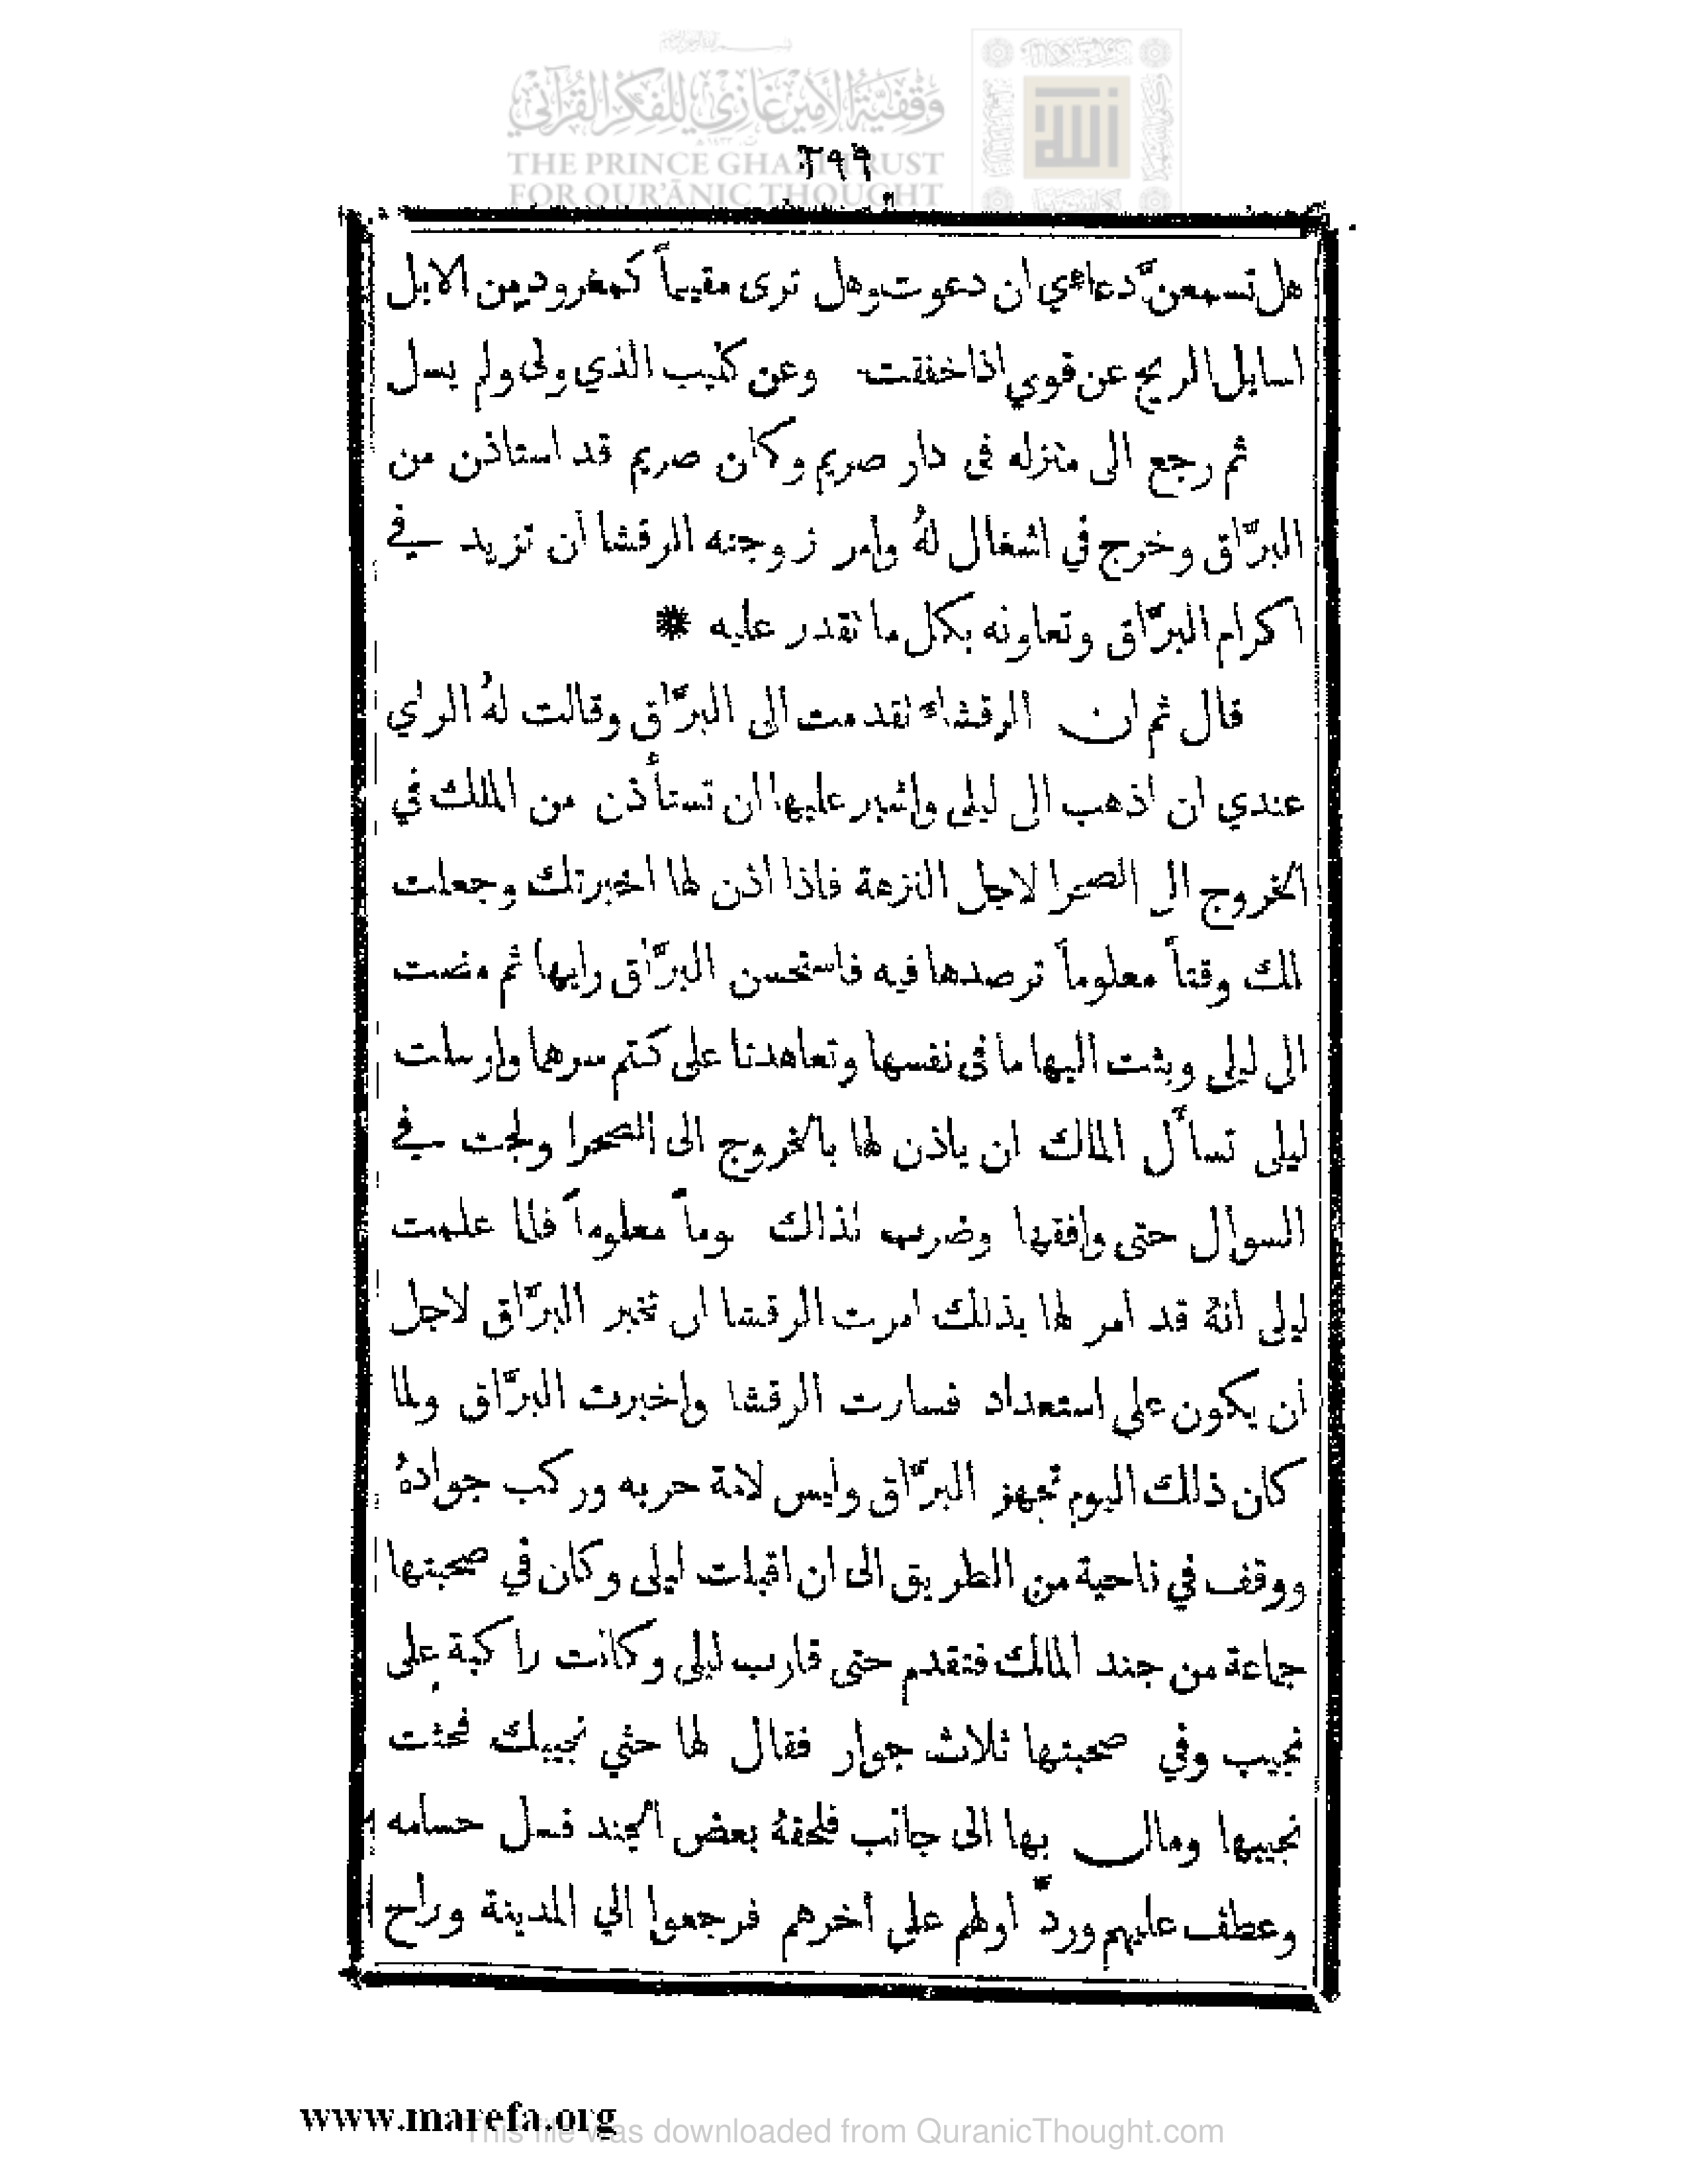 وقفية الأمير غازي للفكر القرآني
THE PRINCE GHAZI TRUST
FOR QUR'ĀNIC THOUGHT
٢٩٩
هل تسمعنَّ دعاءي ان دعوت وهل ترى مقيماً كمفرود من الابل
اسايل الريح عن قومي اذا خفقت وعن كليب الذي ولى ولم يسل
ثم رجع الى منزله فى دار صريم وكان صريم قد استاذن من
البرَّاق وخرج في اشغال لهُ وأمر زوجته الرقشا ان تزيد في
اكرام البرَّاق وتعاونه بكل ما تقدر عليه *
قال ثم ان الرقشاء تقدمت الى البرَّاق وقالت لهُ الراي
عندي ان اذهب الى ليلى واشير عليها ان تستأذن من الملك في
الخروج الى الصحرا لاجل النزهة فاذا اذن لها اخبرتك وجعلت
لك وقتاً معلوماً ترصدها فيه فاستحسن البرَّاق رايها ثم مضت
الى ليلى وبثت اليها ما فى نفسها وتعاهدتا على كتم سرهما وارسلت
ليلى تسأل الملك ان ياذن لها بالخروج الى الصحرا ولجت في
السوال حتى وافقها وضرب لذلك يوماً معلوماً فلما علمت
ليلى انهُ قد امر لها بذلك امرت الرقشا ان تخبر البرَّاق لاجل
ان يكون على استعداد فسارت الرقشا واخبرت البرَّاق ولما
كان ذلك اليوم تجهز البرَّاق ولبس لامة حربه وركب جوادهُ
ووقف في ناحية من الطريق الى ان اقبلت ليلى وكان في صحبتها
جماعة من جند الملك فتقدم حتى قارب ليلى وكانت راكبة على
نجيب وفي صحبتها ثلاث جوار فقال لها حثي نجيبك فحثت
نجيبها ومال بها الى جانب فلحقهُ بعض الجند فسل حسامه
وعطف عليهم وردَّ اولهم على اخرهم فرجعوا الي المدينة وراح
www.marefa.org
This file was downloaded from QuranicThought.com